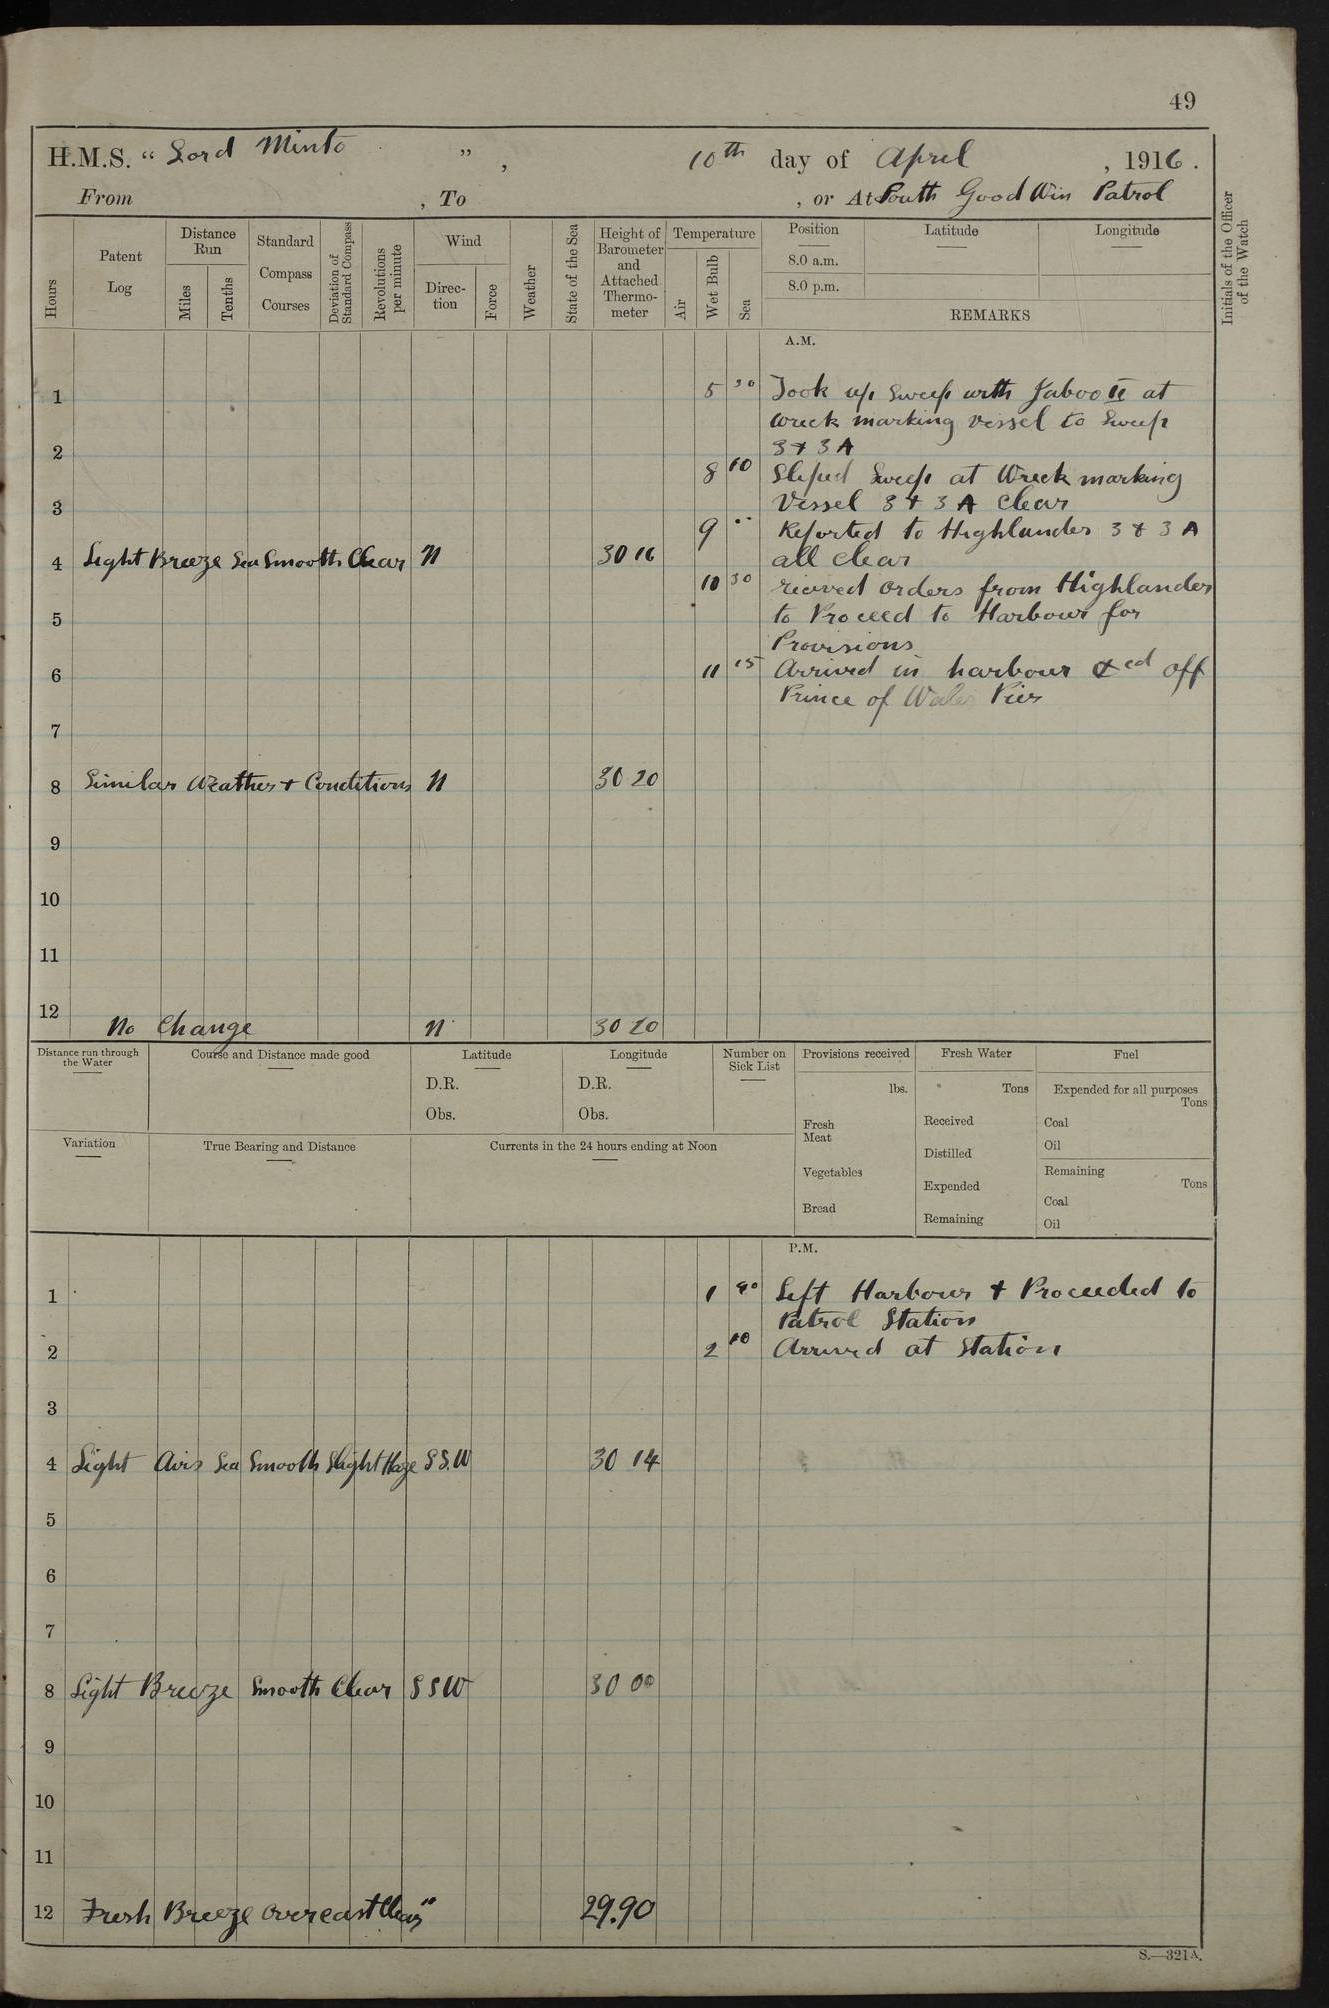 49
H.M.S. “ Lord Minto ” , 10th day of April , 1916.
From , To , or At South Good Win Patrol
Hours
Patent Log
Distance Run
Miles
Tenths
Standard Compass Courses
Deviation of Standard Compass
Revolutions per minute
Wind
Direc-tion
Force
Weather
State of the Sea
Height of Barometer and Attached Thermo-meter
Temperature
Air
Wet Bulb
Sea
Position Latitude Longitude
8.0 a.m.
8.0 p.m.
REMARKS
Initials of the Officer of the Watch
A.M.
1 5 30 Took up Sweep with Jaboo II at
wreck marking vessel to Sweep
2 3 & 3 A
8 10 Sliped Sweep at Wreck marking
3 Vessel 3 & 3 A Clear
9 .. Reported to Highlander 3 & 3 A
4 Light Breeze Sea Smooth Clear N 30 16 all clear
10 30 recived orders from Highlander
5 to Proceed to Harbour for
Provisions
6 11 15 Arrived in harbour & ed off
Prince of Wales Pier
7
8 Similar Weather & Conditions N 30 20
9
10
11
12 No Change N 30 20
Distance run through the Water
Course and Distance made good
Latitude
D.R.
Obs.
Longitude
D.R.
Obs.
Number on Sick List
Provisions received
lbs.
Fresh Meat
Vegetables
Bread
Fresh Water
Tons
Received
Distilled
Expended
Remaining
Fuel
Expended for all purposes
Tons
Coal
Oil
Remaining
Tons
Coal
Oil
Variation
True Bearing and Distance
Currents in the 24 hours ending at Noon
P.M.
1 1 40 Left Harbour & Proceeded to
Patrol Station
2 2 10 Arrived at Station
3
4 Light Airs Sea Smooth Slight Haze S S.W 30 14
5
6
7
8 Light Breeze Smooth Clear S S W 30 00
9
10
11
12 Fresh Breeze overcast Clear " 29.90
S.—321A.